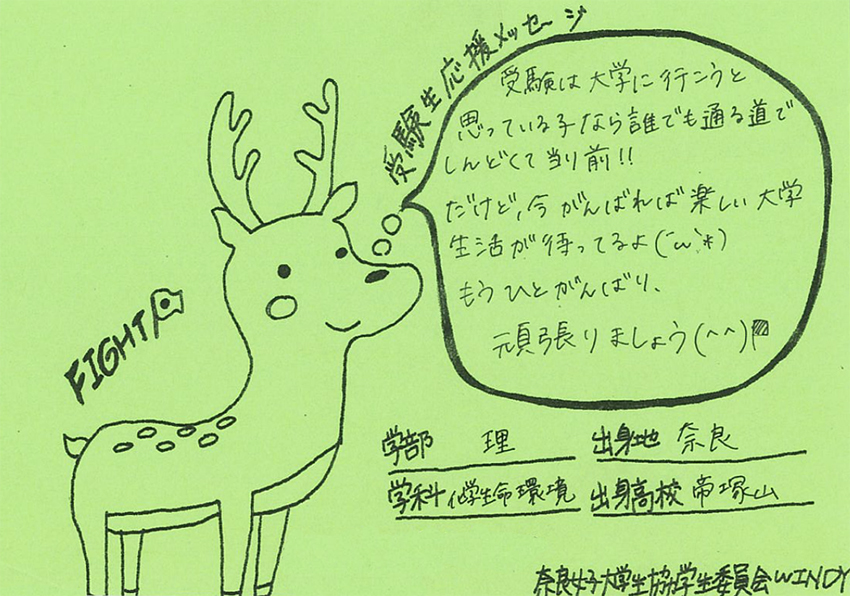 受験生応援メッセージ
受験は大学に行こうと
思っている子なら誰でも通る道で
しんどくて当り前!!
だけど、今がんばれば楽しい大学
生活が待ってるよ(´ω`*)
もうひとがんばり、
頑張りましょう(^^)
FIGHT
学部 理
出身地 奈良
学科 化学生命環境
出身高校 帝塚山
奈良女子大学生協学生委員会WINDY